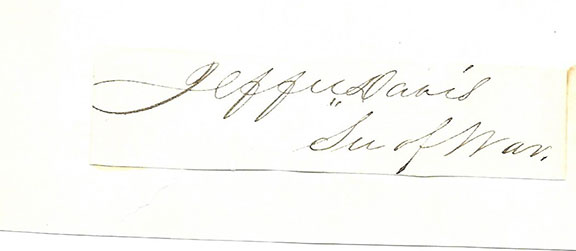 Jeffn Davis
Sec of War.